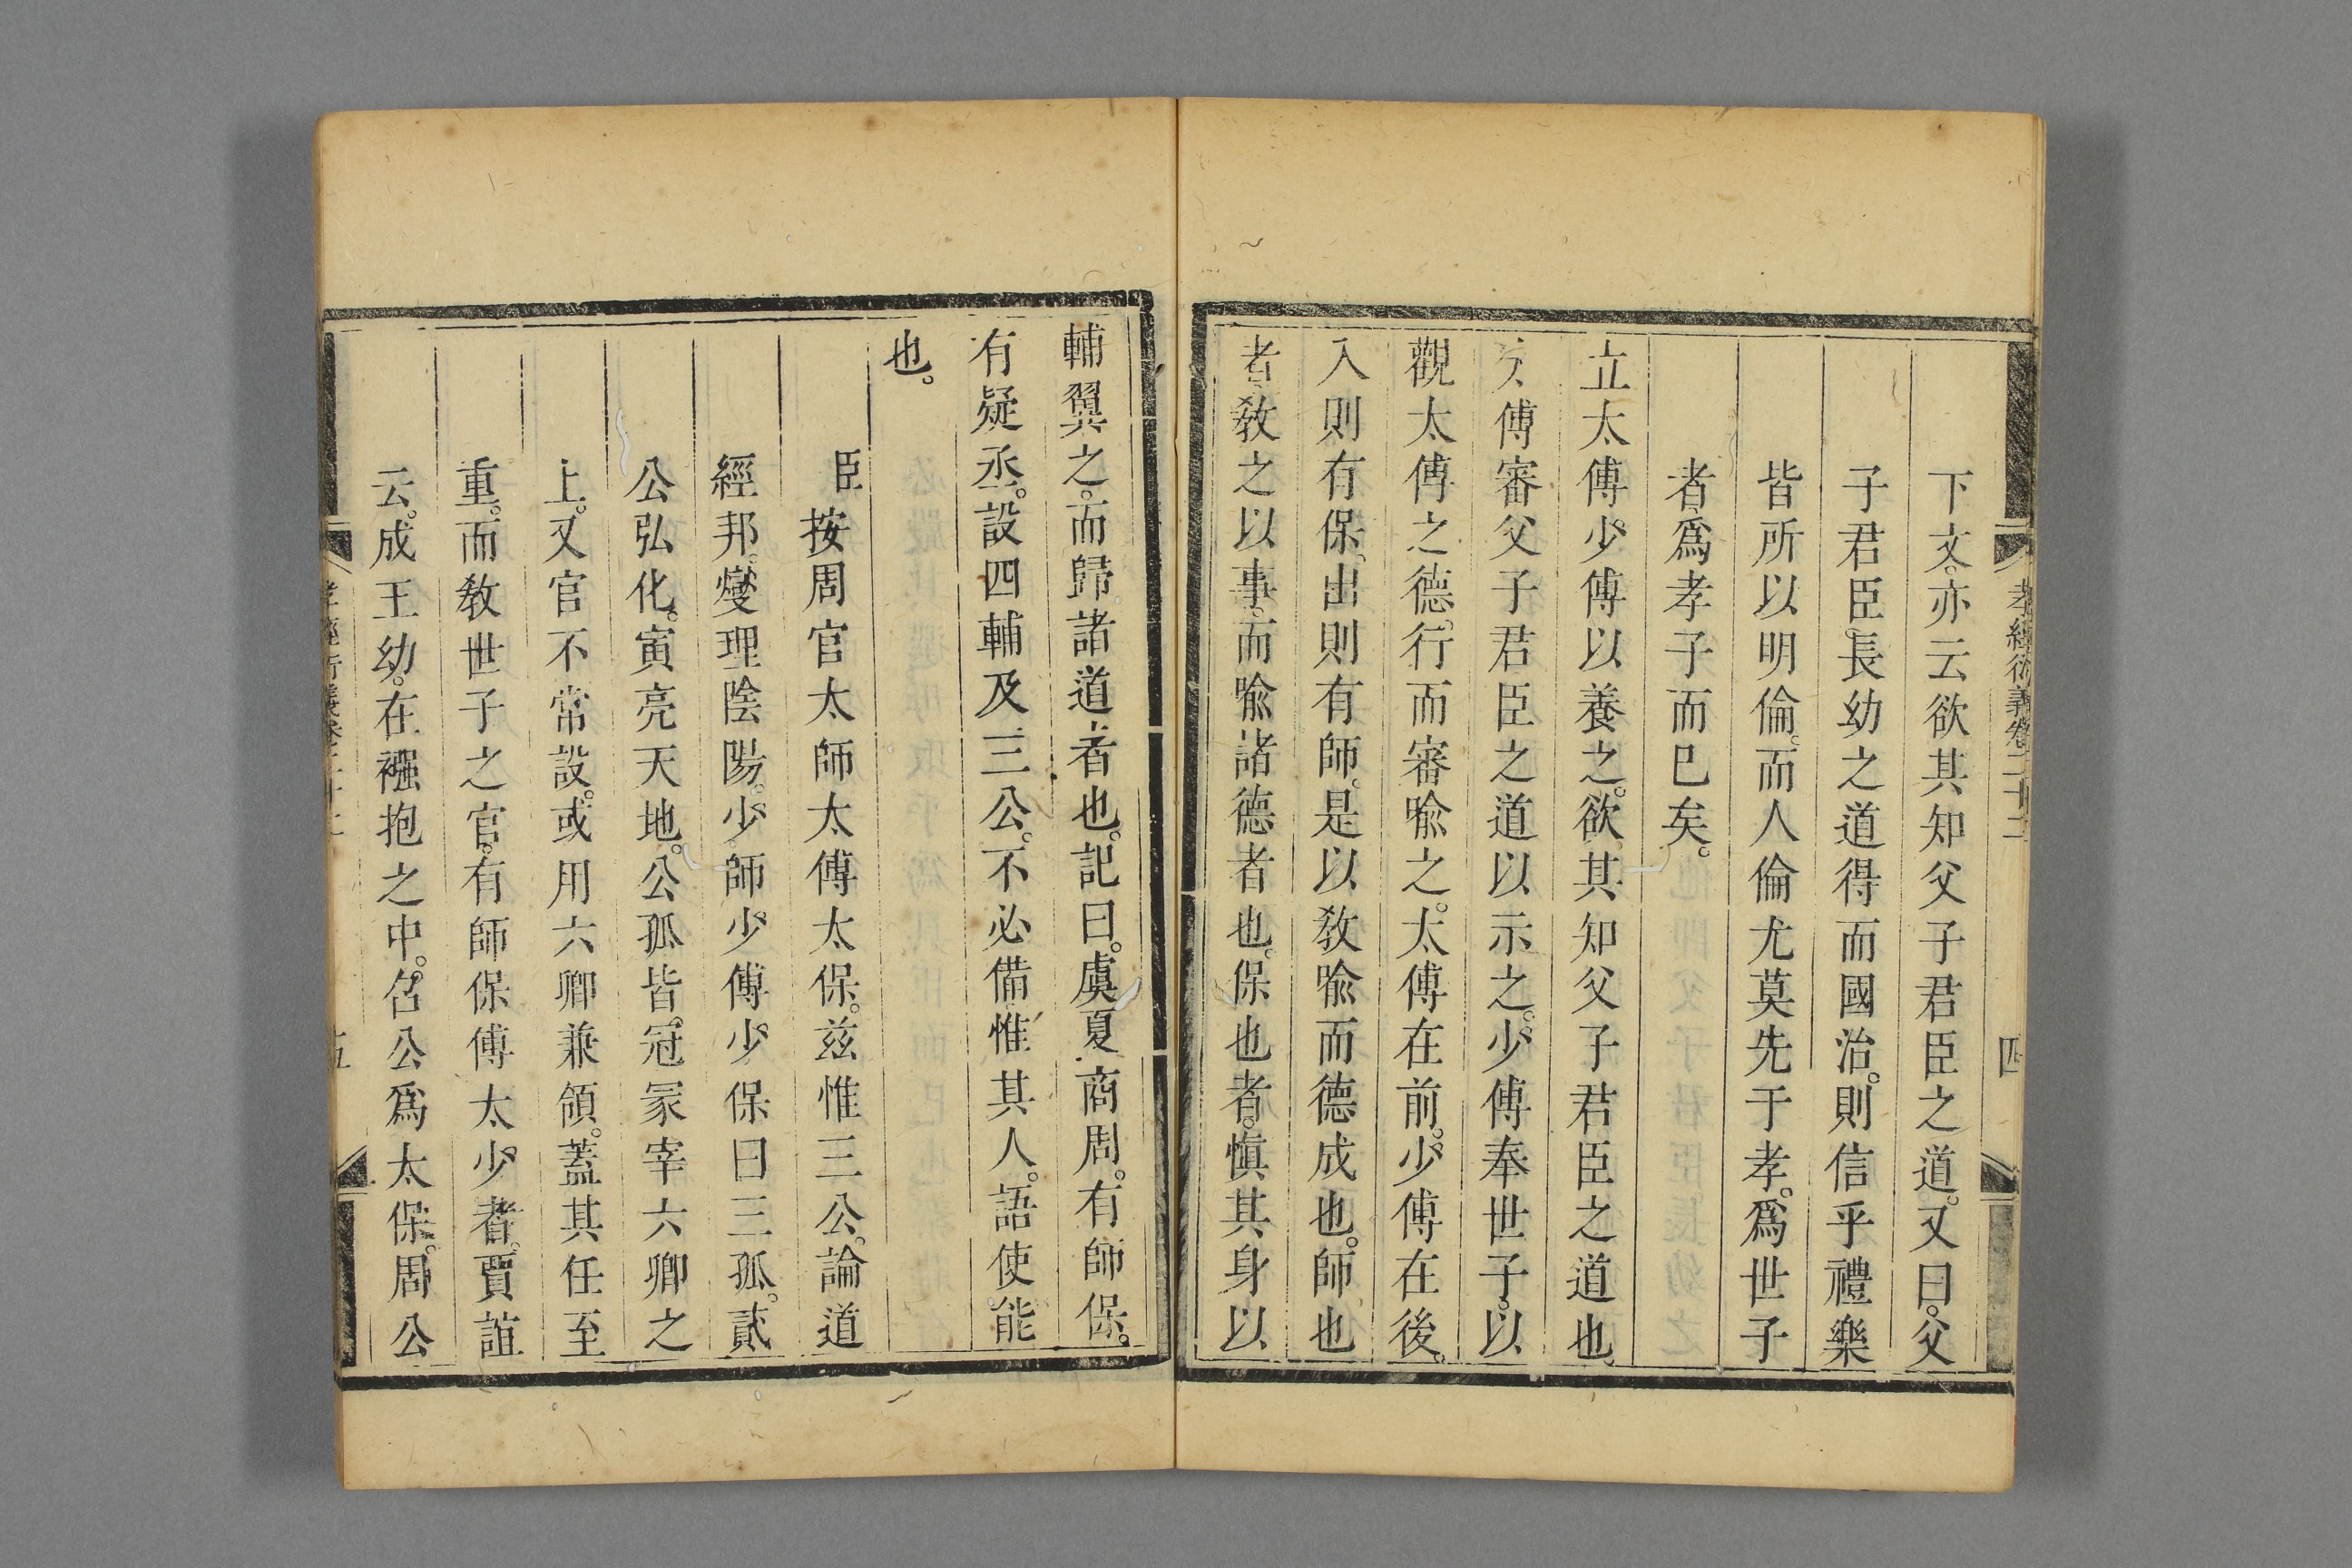 孝經衍義卷二十二
四
下文。亦云欲其知父子君臣之道。又曰。父
子君臣。長幼之道得而國治。則信乎禮樂
皆所以明倫。而人倫尤莫先于孝。爲世子
者爲孝子而已矣。
立太傅少傅以養之。欲其知父子君臣之道也。
傅審父子君臣之道以示之。少傅奉世子。以
觀太傅之德。行而審喩之。太傅在前。少傅在後。
入則有保。出則有師。是以敎喩而德成也。師也
者敎之以事。而喩諸德者也。保也者。愼其身以
輔翼之。而歸諸道者也。記曰。虞夏商周。有師保。
有疑丞。設四輔及三公。不必備惟其人。語使能
也。
臣按周官太師太傅太保。玆惟三公。論道
經邦。燮理陰陽。少師少傅少保曰三孤。貳
公弘化。寅亮天地。公孤皆。冠冢宰六卿之
上。又官不常設。或用六卿兼領。蓋其任至
重。而敎世子之官。有師保傅太少者。賈誼
云。成王幼。在襁抱之中。召公爲太保。周公
五